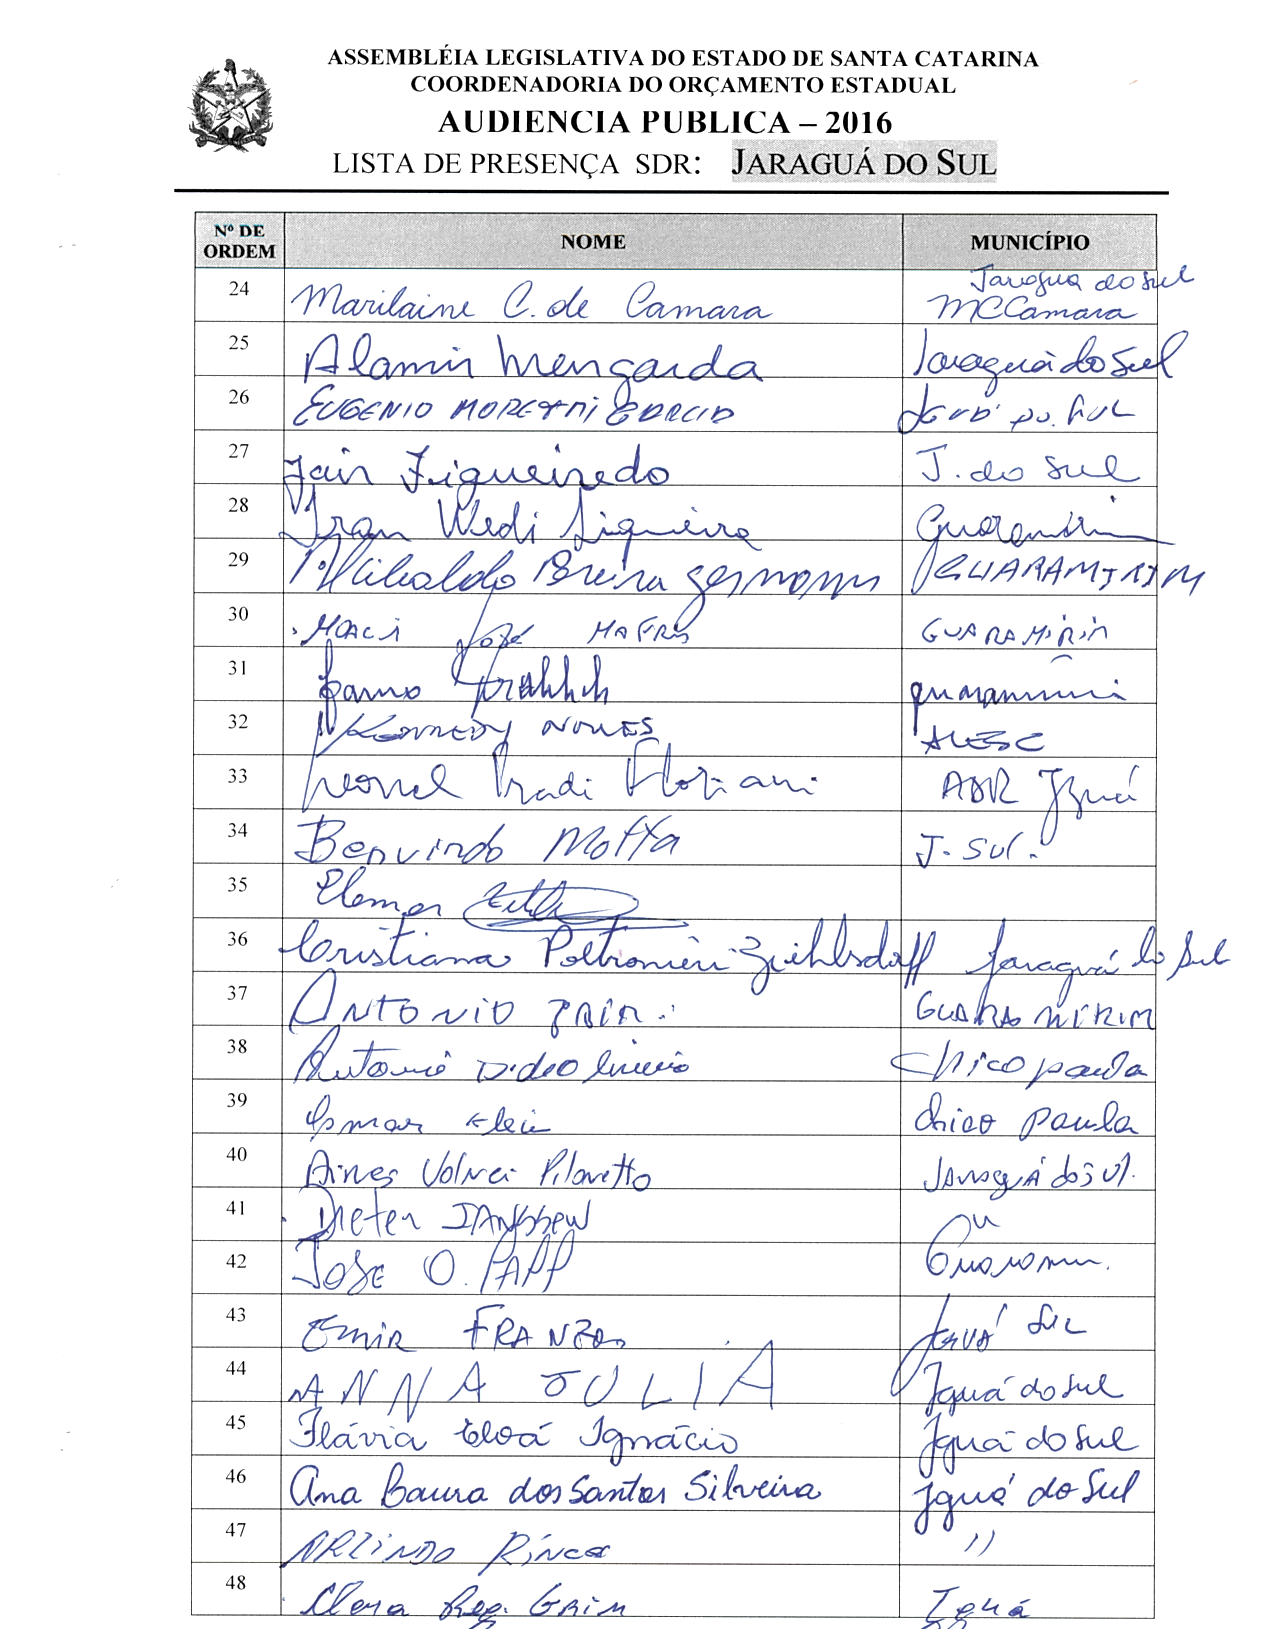 ASSEMBLÉIA LEGISLATIVA DO ESTADO DE SANTA CATARINA
COORDENADORIA DO ORÇAMENTO ESTADUAL
AUDIENCIA PUBLICA – 2016
LISTA DE PRESENÇA SDR: JARAGUÁ DO SUL
Nº DE ORDEM NOME MUNICÍPIO
24 Marilaine C. de Camara Jaragua do Sul MCCamara
25 Alamir Mengarda Jaraguá do Sul
26 EUGENIO MORETTI GARCIA do SUL
27 Jair Figueiredo J. do Sul
28 Iran Wedi Siqueira
29 GUARAMIRIM
30 MOACI JOSÉ MAFRA GUARAMIRIM
31
32 KENNEDY NUNES ALESC
33 Leonel Pradi Floriani ADR Jguá
34 Benvindo Motta J. Sul.
35 Elemar
36 Cristiana Poltronieri Ziehlsdorff Jaraguá do Sul
37 ANTONIO GUARAMIRIM
38 Antonio Chico paula
39 Osmar Klein Chico paula
40 Volnei Pilonetto Jaraguá do Sul.
41 Dieter JANSSEN
42 JOSE O. PAPP
43 EMIR FRANZNER JGUÁ SUL
44 ANNA JULIA Jguá do Sul
45 Flávia Eloá Ignácio Jguá do Sul
46 Ana Laura dos Santos Silveira Jguá do Sul
47 ARLINDO RINCOS "
48 Reg. GRIM Jguá